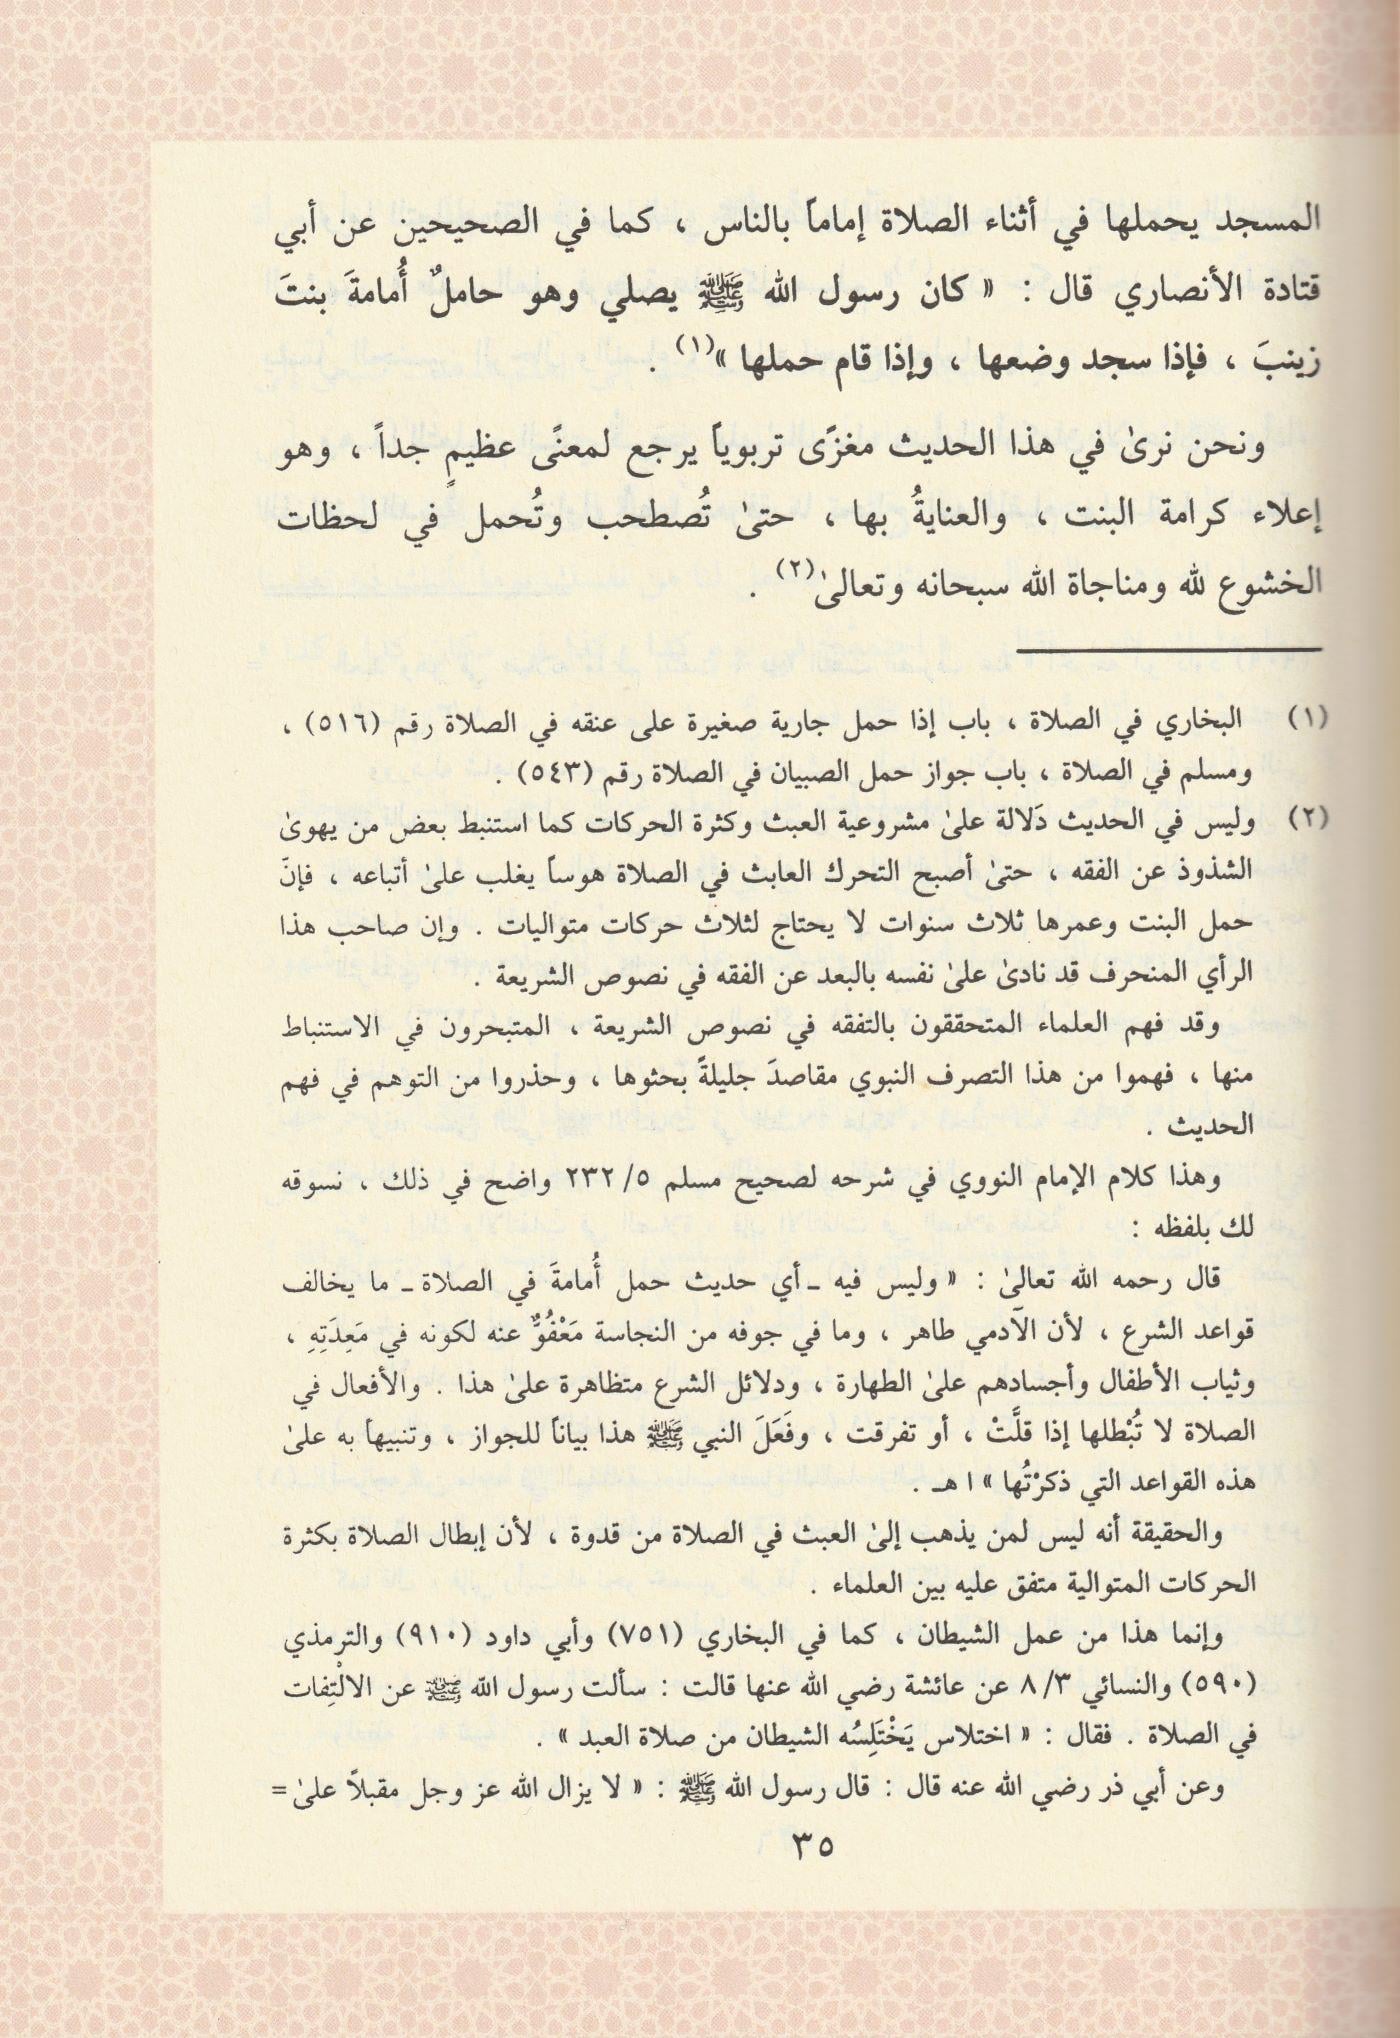 المسجد يحملها في أثناء الصلاة إماماً بالناس ، كما في الصحيحين عن أبي
قتادة الأنصاري قال : « كان رسول الله ﷺ يصلي وهو حاملٌ أُمامةَ بنتَ
زينبَ ، فإذا سجد وضعها ، وإذا قام حملها »(١) .
ونحن نرىٰ في هذا الحديث مغزًى تربوياً يرجع لمعنًى عظيمٍ جداً ، وهو
إعلاء كرامة البنت ، والعنايةُ بها ، حتىٰ تُصطحب وتُحمل في لحظات
الخشوع لله ومناجاة الله سبحانه وتعالىٰ(٢) .
(١) البخاري في الصلاة ، باب إذا حمل جارية صغيرة على عنقه في الصلاة رقم (٥١٦) ،
ومسلم في الصلاة ، باب جواز حمل الصبيان في الصلاة رقم (٥٤٣) .
(٢) وليس في الحديث دَلالة علىٰ مشروعية العبث وكثرة الحركات كما استنبط بعض من يهوىٰ
الشذوذ عن الفقه ، حتىٰ أصبح التحرك العابث في الصلاة هوساً يغلب علىٰ أتباعه ، فإنّ
حمل البنت وعمرها ثلاث سنوات لا يحتاج لثلاث حركات متواليات . وإن صاحب هذا
الرأي المنحرف قد نادىٰ علىٰ نفسه بالبعد عن الفقه في نصوص الشريعة .
وقد فهم العلماء المتحققون بالتفقه في نصوص الشريعة ، المتبحرون في الاستنباط
منها ، فهموا من هذا التصرف النبوي مقاصدَ جليلةً بحثوها ، وحذروا من التوهم في فهم
الحديث .
وهذا كلام الإمام النووي في شرحه لصحيح مسلم ٥/ ٢٣٢ واضح في ذلك ، نسوقه
لك بلفظه :
قال رحمه الله تعالىٰ : « وليس فيه ـ أي حديث حمل أُمامةَ في الصلاة ـ ما يخالف
قواعد الشرع ، لأن الآدمي طاهر ، وما في جوفه من النجاسة مَعْفُوٌّ عنه لكونه في مَعِدَتِهِ ،
وثياب الأطفال وأجسادهم علىٰ الطهارة ، ودلائل الشرع متظاهرة علىٰ هذا . والأفعال في
الصلاة لا تُبْطلها إذا قلَّتْ ، أو تفرقت ، وفَعَلَ النبي ﷺ هذا بياناً للجواز ، وتنبيهاً به علىٰ
هذه القواعد التي ذكرْتُها » ا هـ .
والحقيقة أنه ليس لمن يذهب إلىٰ العبث في الصلاة من قدوة ، لأن إبطال الصلاة بكثرة
الحركات المتوالية متفق عليه بين العلماء .
وإنما هذا من عمل الشيطان ، كما في البخاري (٧٥١) وأبي داود (٩١٠) والترمذي
(٥٩٠) والنسائي ٣/ ٨ عن عائشة رضي الله عنها قالت : سألت رسول الله ﷺ عن الالْتِفات
في الصلاة . فقال : « اختلاس يَخْتَلِسُه الشيطان من صلاة العبد » .
وعن أبي ذر رضي الله عنه قال : قال رسول الله ﷺ : « لا يزال الله عز وجل مقبلاً علىٰ =
٣٥